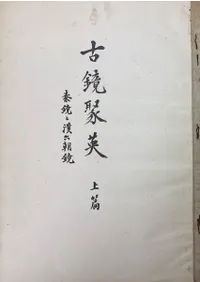 古鏡聚英
上篇
秦鏡と漢六朝鏡